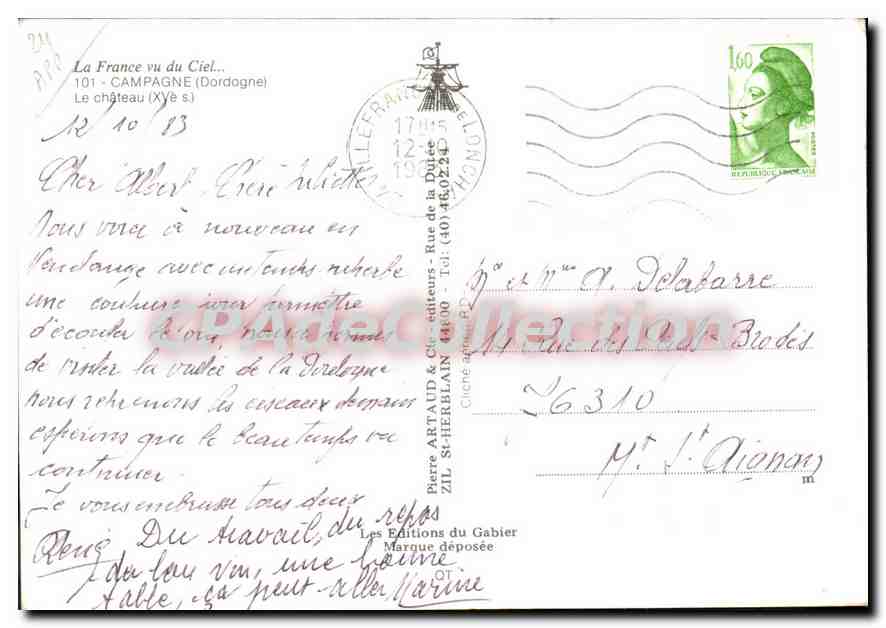 24
APP
La France vu du Ciel...
101 - CAMPAGNE (Dordogne)
Le château (XVè s.)
12/10/83
Cher Albert, Chère Juliette
Nous voici à nouveau en
vendange avec un temps superbe
une coupure pour permettre
d'écouler le vin, nous
de visiter la vallée de la Dordogne
nous reprenons les ciseaux demain
espérons que le beau temps va
continuer.
Je vous embrasse tous deux
René Du travail, du repos
du bon vin, une bonne
table, ça peut aller Karine
VILLEFRANCHE LONCHAT
17H15
12-10
198
Pierre ARTAUD & Cie - éditeurs - Rue de la Dutée
ZIL St-HERBLAIN 44800 - Tél: (40) 46.02.24
Cliché aérien
Les Editions du Gabier
Marque déposée
QT
1,60
POSTES
REPUBLIQUE FRANÇAISE
Mr et Mme A. Delabarre
14 Rue des Brodés
76310
Mt St Aignan
m
CPAdeCollection